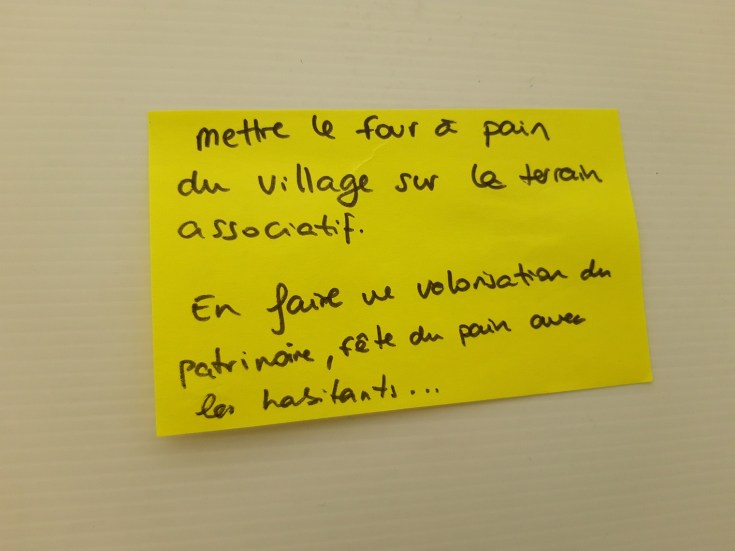 mettre le four à pain
du village sur le terrain
associatif.
En faire une valorisation du
patrimoine, fête du pain avec
les habitants...